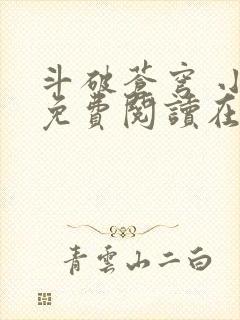 斗破蒼穹 小
免費閱讀在
青雲山二白